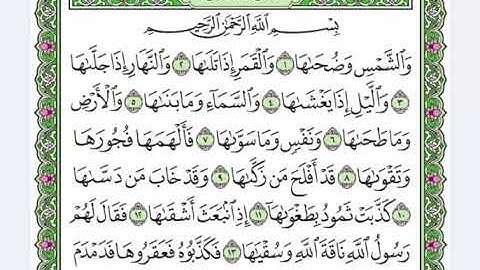 بِسْمِ ٱللَّهِ ٱلرَّحْمَٰنِ ٱلرَّحِيمِ
وَٱلشَّمْسِ وَضُحَىٰهَا ١ وَٱلْقَمَرِ إِذَا تَلَىٰهَا ٢ وَٱلنَّهَارِ إِذَا جَلَّىٰهَا
٣ وَٱلَّيْلِ إِذَا يَغْشَىٰهَا ٤ وَٱلسَّمَآءِ وَمَا بَنَىٰهَا ٥ وَٱلْأَرْضِ
وَمَا طَحَىٰهَا ٦ وَنَفْسٍ وَمَا سَوَّىٰهَا ٧ فَأَلْهَمَهَا فُجُورَهَا
وَتَقْوَىٰهَا ٨ قَدْ أَفْلَحَ مَن زَكَّىٰهَا ٩ وَقَدْ خَابَ مَن دَسَّىٰهَا
١٠ كَذَّبَتْ ثَمُودُ بِطَغْوَىٰهَآ ١١ إِذِ ٱنۢبَعَثَ أَشْقَىٰهَا ١٢ فَقَالَ لَهُمْ
رَسُولُ ٱللَّهِ نَاقَةَ ٱللَّهِ وَسُقْيَٰهَا ١٣ فَكَذَّبُوهُ فَعَقَرُوهَا فَدَمْدَمَ